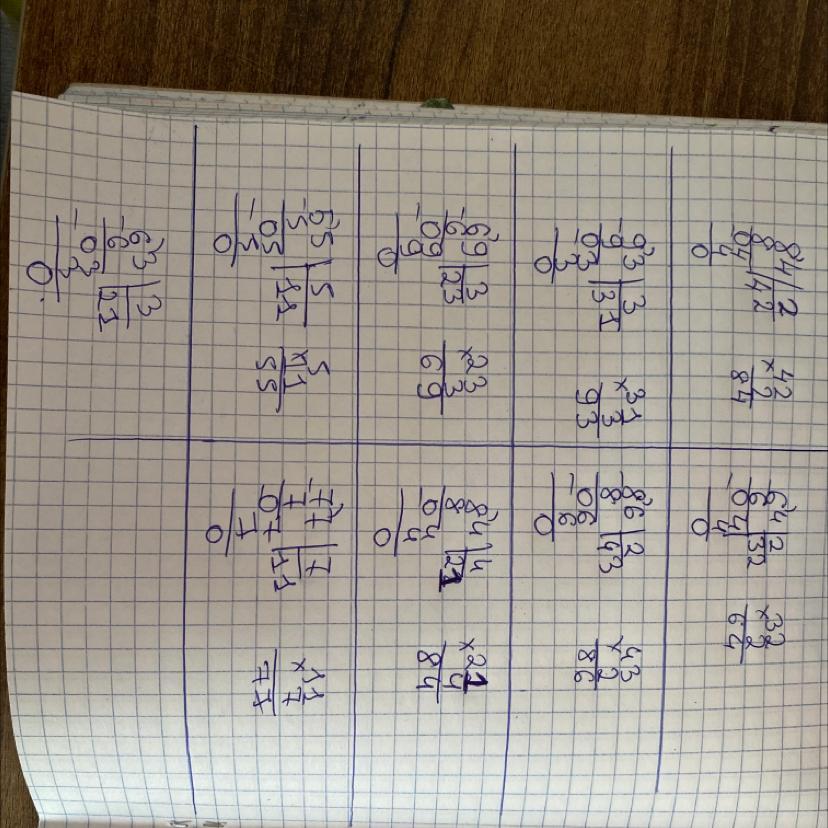 84 | 2
8 | 42
04
- 4
0
42
x 2
84
64 | 2
6 | 32
- 04
4
0
32
x 2
64
93 | 3
- 9 | 31
03
- 3
0
31
x 3
93
86 | 2
8 | 43
- 06
6
0
43
x 2
86
69 | 3
- 6 | 23
- 09
9
0
23
x 3
69
84 | 4
8 | 21
04
4
0
21
x 4
84
55 | 5
- 5 | 11
05
- 5
0
5
x 11
55
77 | 7
- 7 | 11
07
7
0
11
x 7
77
63 | 3
- 6 | 21
03
- 3
0